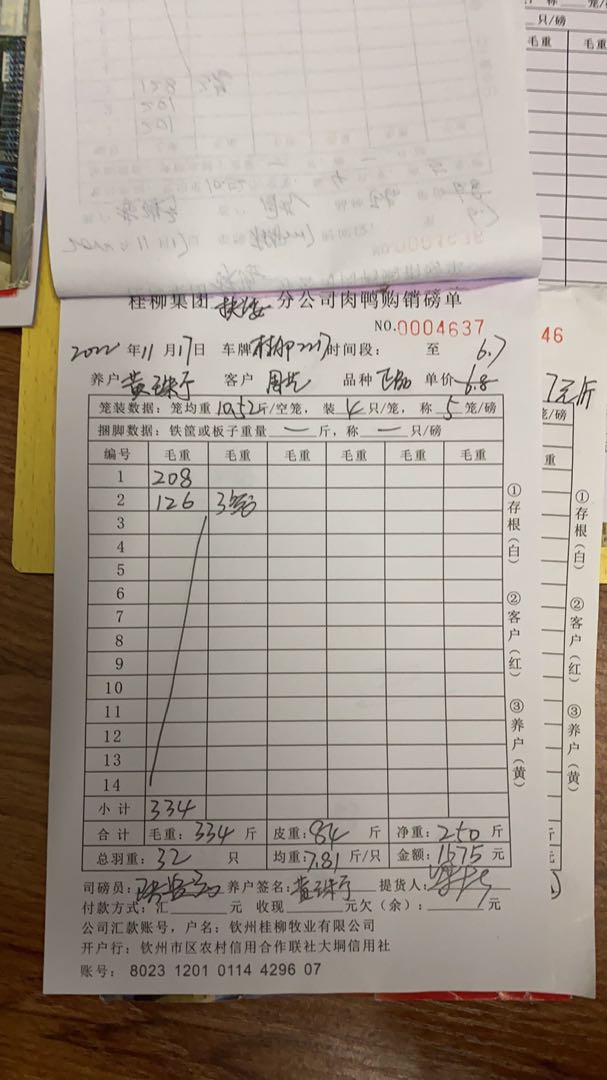 只/磅
毛重
毛重
桂柳集团 分公司肉鸭购销磅单
NO.0004637
46
2022 年 11 月 17 日 车牌 2217 时间段: 至 6.7
养户 黄 客户 周 品种 单价 6.8
7元/斤
笼装数据: 笼均重 10.52 斤/空笼, 装 4 只/笼, 称 5 笼/磅
捆脚数据: 铁筐或板子重量 一 斤, 称 一 只/磅
编号 毛重 毛重 毛重 毛重 毛重 毛重
1 208
2 126 3笼
3
4
5
6
7
8
9
10
11
12
13
14
小计 334
合计 毛重: 334 斤 皮重: 84 斤 净重: 250 斤
总羽重: 32 只 均重: 7.81 斤/只 金额: 1675 元
司磅员: 养户签名: 黄 提货人:
付款方式: 汇 元 收现 元欠(余): 元
公司汇款账号, 户名: 钦州桂柳牧业有限公司
开户行: 钦州市区农村信用合作联社大垌信用社
账号: 8023 1201 0114 4296 07
①存根(白) ②客户(红) ③养户(黄)
①存根(白) ②客户(红) ③养户(黄)